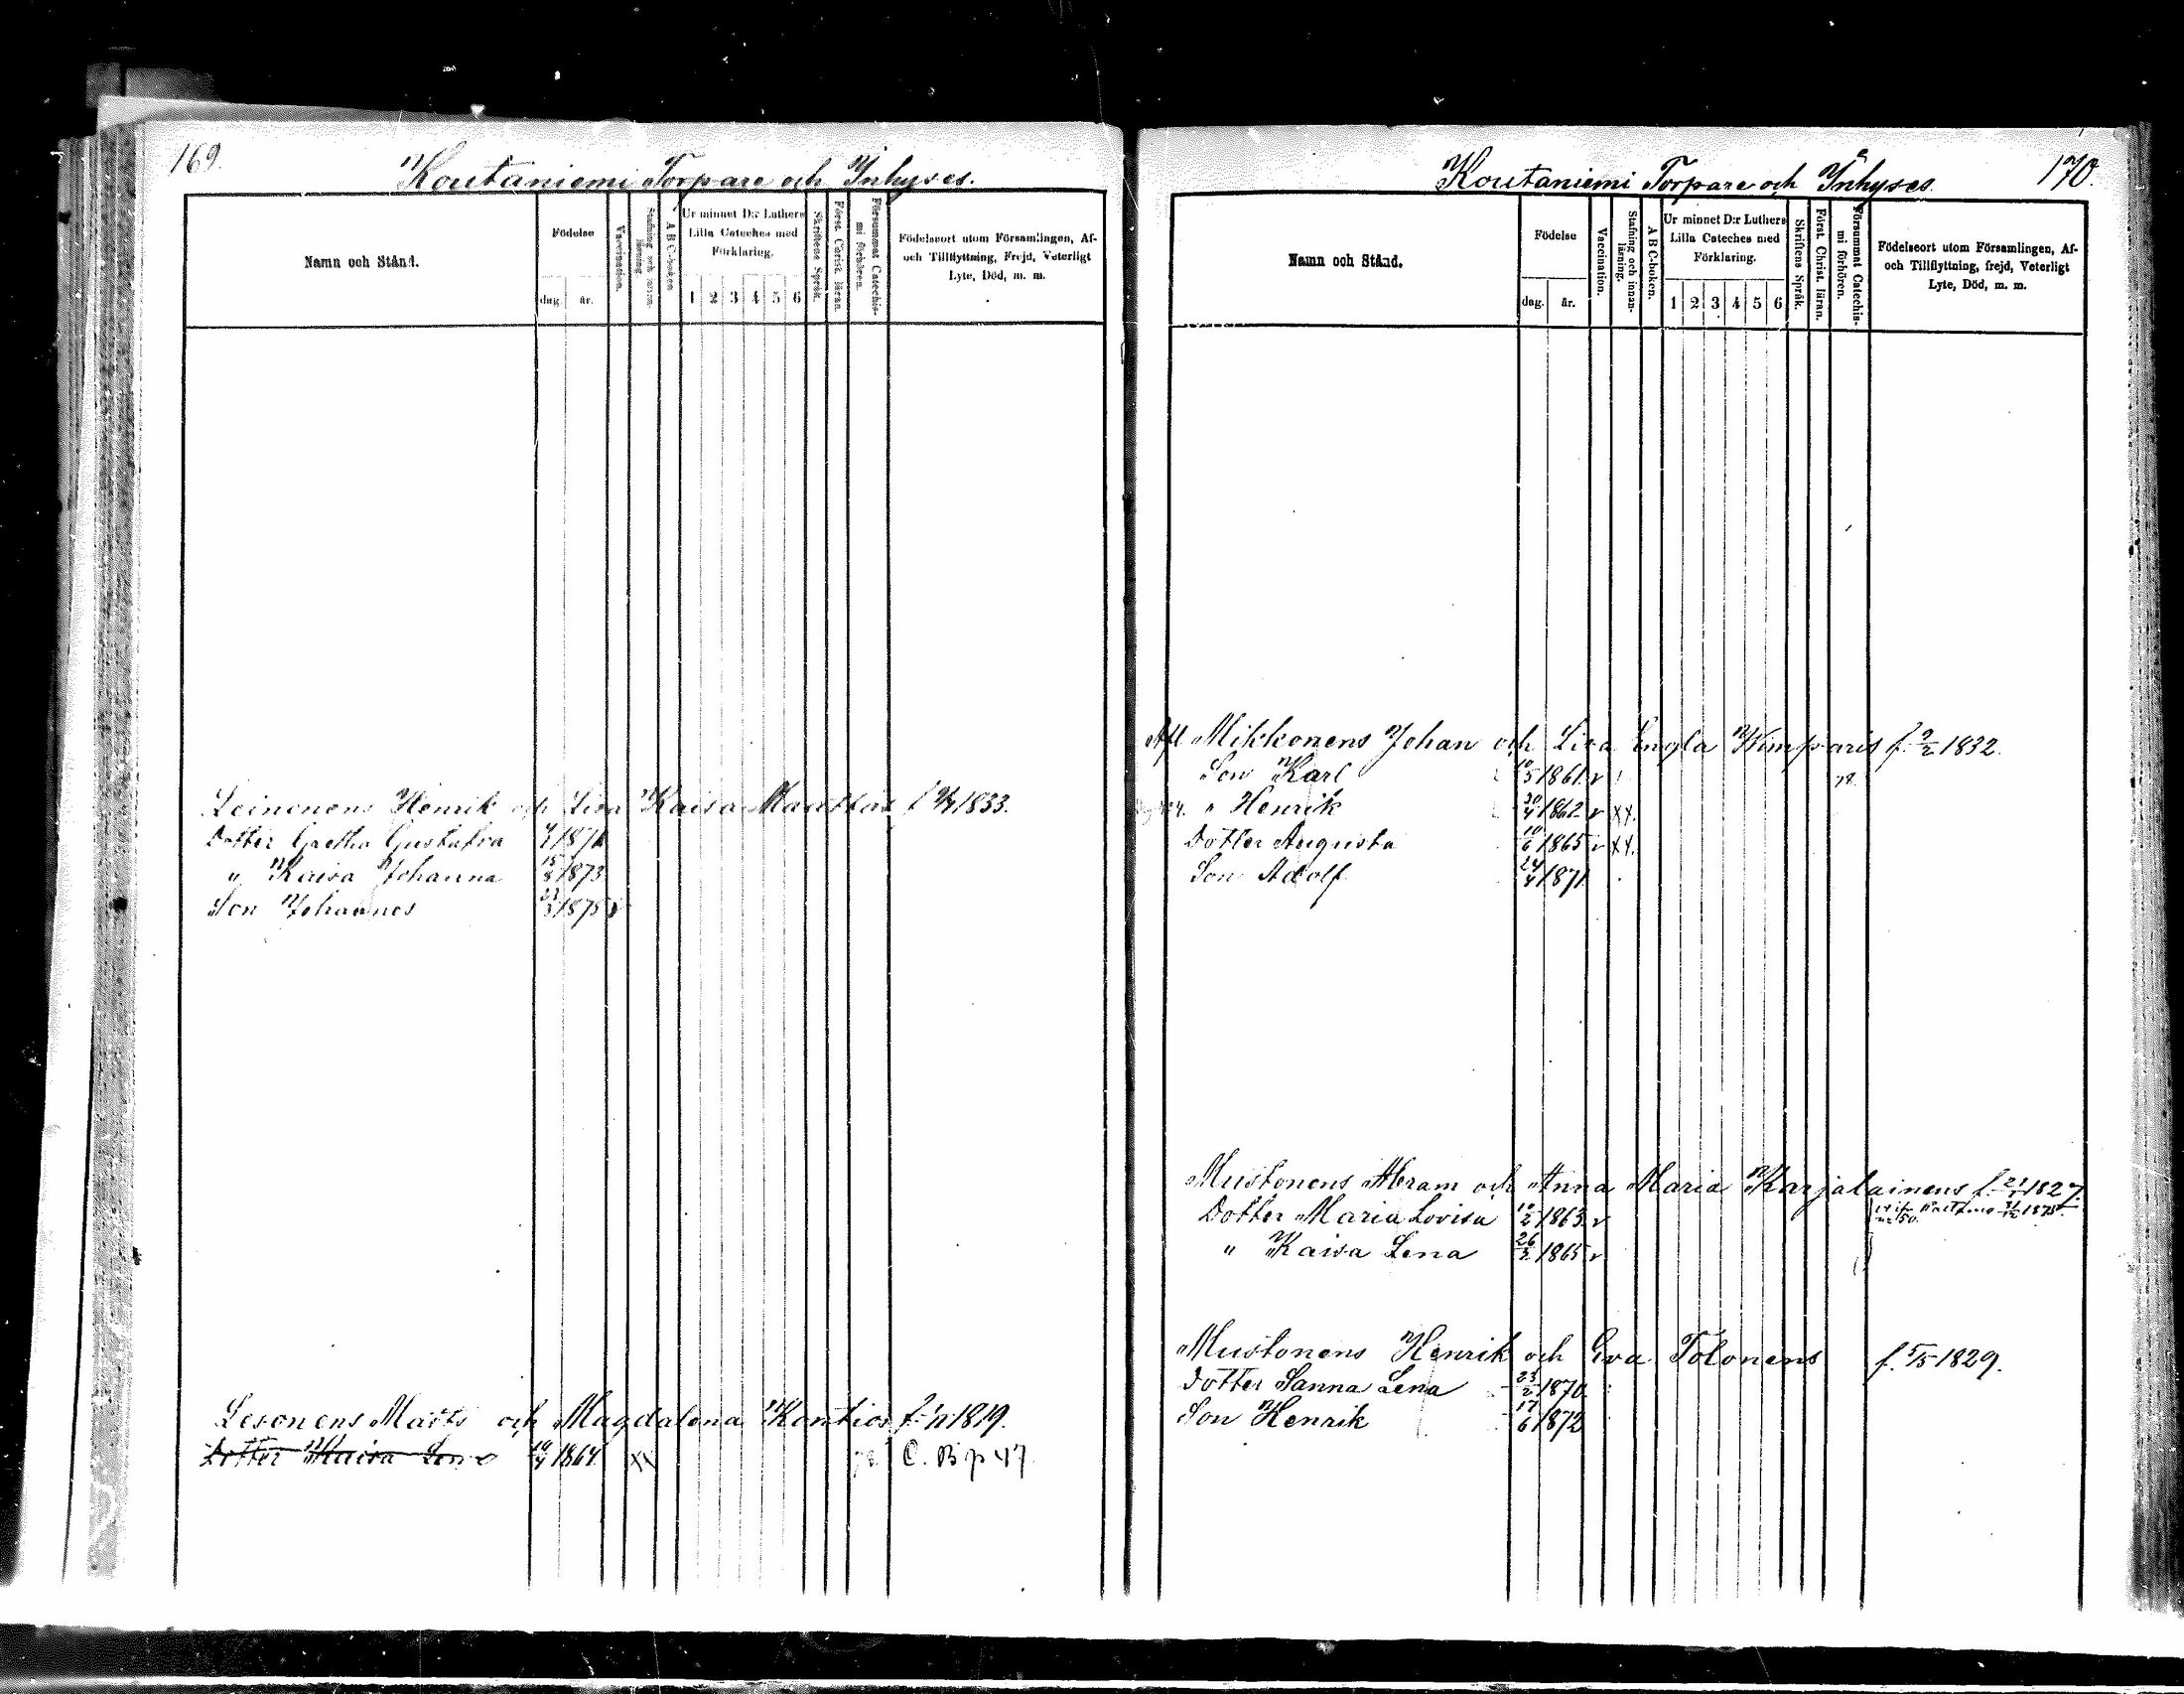 169.
Koutaniemi Torpare och Inhyses.
Namn och Stånd.
Födelse
dag. år.
Vaccination.
Stafning och innan-
läsning.
A B C-boken
Ur minnet D:r Luthers
Lilla Cateches med
Förklaring.
1 2 3 4 5 6
Skriftens Språk.
Först. Christ. läran.
Försummat Catechis-
mi förhören.
Födelseort utom Församlingen, Af-
och Tillflyttning, Frejd, Veterligt
Lyte, Död, m. m.
Leinonens Henrik och Lisa Kaisa f. 1833.
Dotter Gretha Gustafva 1871
" Kaisa Johanna 15/8 1873
Son Johannes 1875 v
Lesonens Matts och Magdalena Kontios f. 1819.
Dotter Kaisa Lena 1864 xx 78. C. B. p 47
170.
Koutaniemi Torpare och Inhyses.
Namn och Stånd.
Födelse
dag. år.
Vaccination.
Stafning och innan-
läsning.
A B C-boken.
Ur minnet D:r Luthers
Lilla Cateches med
Förklaring.
1 2 3 4 5 6
Skriftens Språk.
Först. Christ. läran.
Försummat Catechis-
mi förhören.
Födelseort utom Församlingen, Af-
och Tillflyttning, frejd, Veterligt
Lyte, Död, m. m.
Afl. Mikkonens Johan och Lisa Engla Kimparis f. 9/2 1832.
Son Karl 10/5 1861. v 78.
" Henrik 30/4 1862 v xx.
Dotter Augusta 10/6 1865 v xx.
Son Adolf 24/4 1871.
Mustonens Abram och Anna Maria Karjalainens f. 1827.
1875.
Dotter Maria Lovisa 10/2 1863. v
" Kaisa Lena 26/2 1865 v
Mustonens Henrik och Eva Tolonens f. 5/5 1829.
Dotter Sanna Lena 23/2 1870.
Son Henrik 17/6 1872